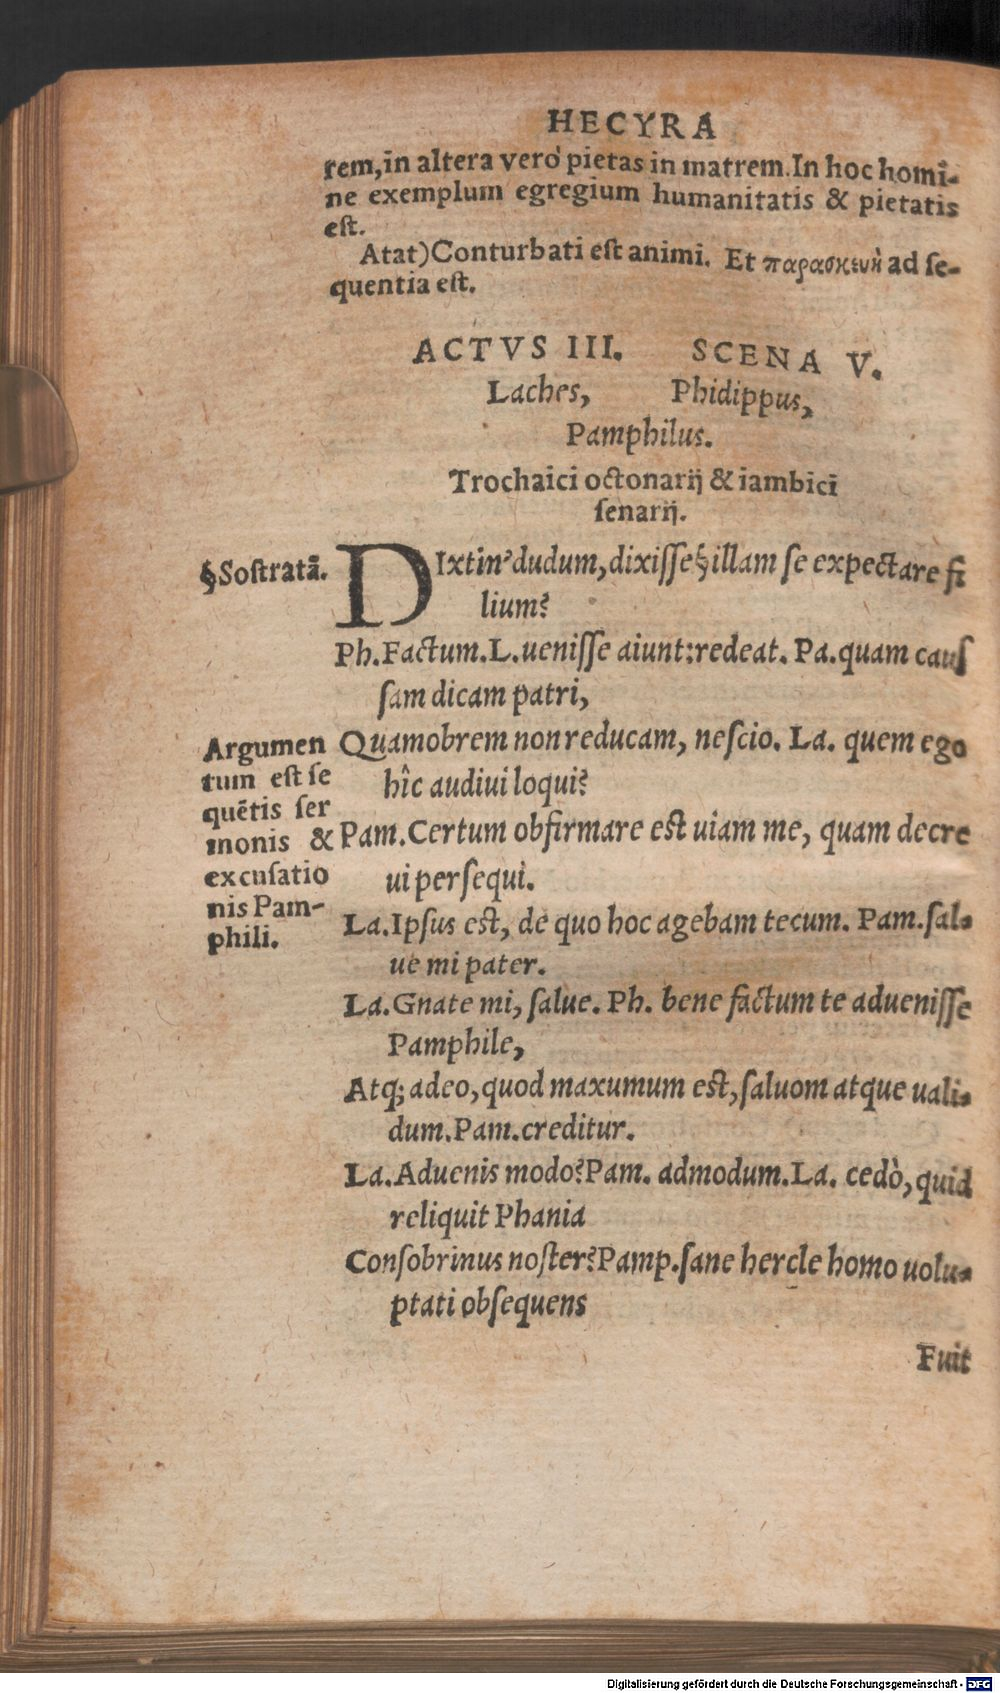 HECYRA
rem, in altera vero pietas in matrem. In hoc homi-
ne exemplum egregium humanitatis & pietatis
est.
Atat) Conturbati est animi. Et παρασκευὴ ad se-
quentia est.
ACTVS III. SCENA V.
Laches, Phidippus,
Pamphilus.
Trochaici octonarij & iambici
senarij.
§ Sostratā.
DIxtin' dudum, dixisse § illam se expectare fi
lium?
Ph. Factum. L. uenisse aiunt: redeat. Pa. quam caus
sam dicam patri,
Quamobrem non reducam, nescio. La. quem ego
hîc audiui loqui?
Argumen
tum est se
quētis ser
monis &
excusatio
nis Pam-
phili.
Pam. Certum obfirmare est uiam me, quam decre
ui persequi.
La. Ipsus est, de quo hoc agebam tecum. Pam. sal-
ue mi pater.
La. Gnate mi, salue. Ph. bene factum te aduenisse
Pamphile,
Atq; adeo, quod maxumum est, saluom atque uali-
dum. Pam. creditur.
La. Aduenis modo? Pam. admodum. La. cedò, quid
reliquit Phania
Consobrinus noster? Pamp. sane hercle homo uolu-
ptati obsequens
Fuit
Digitalisierung gefördert durch die Deutsche Forschungsgemeinschaft - DFG